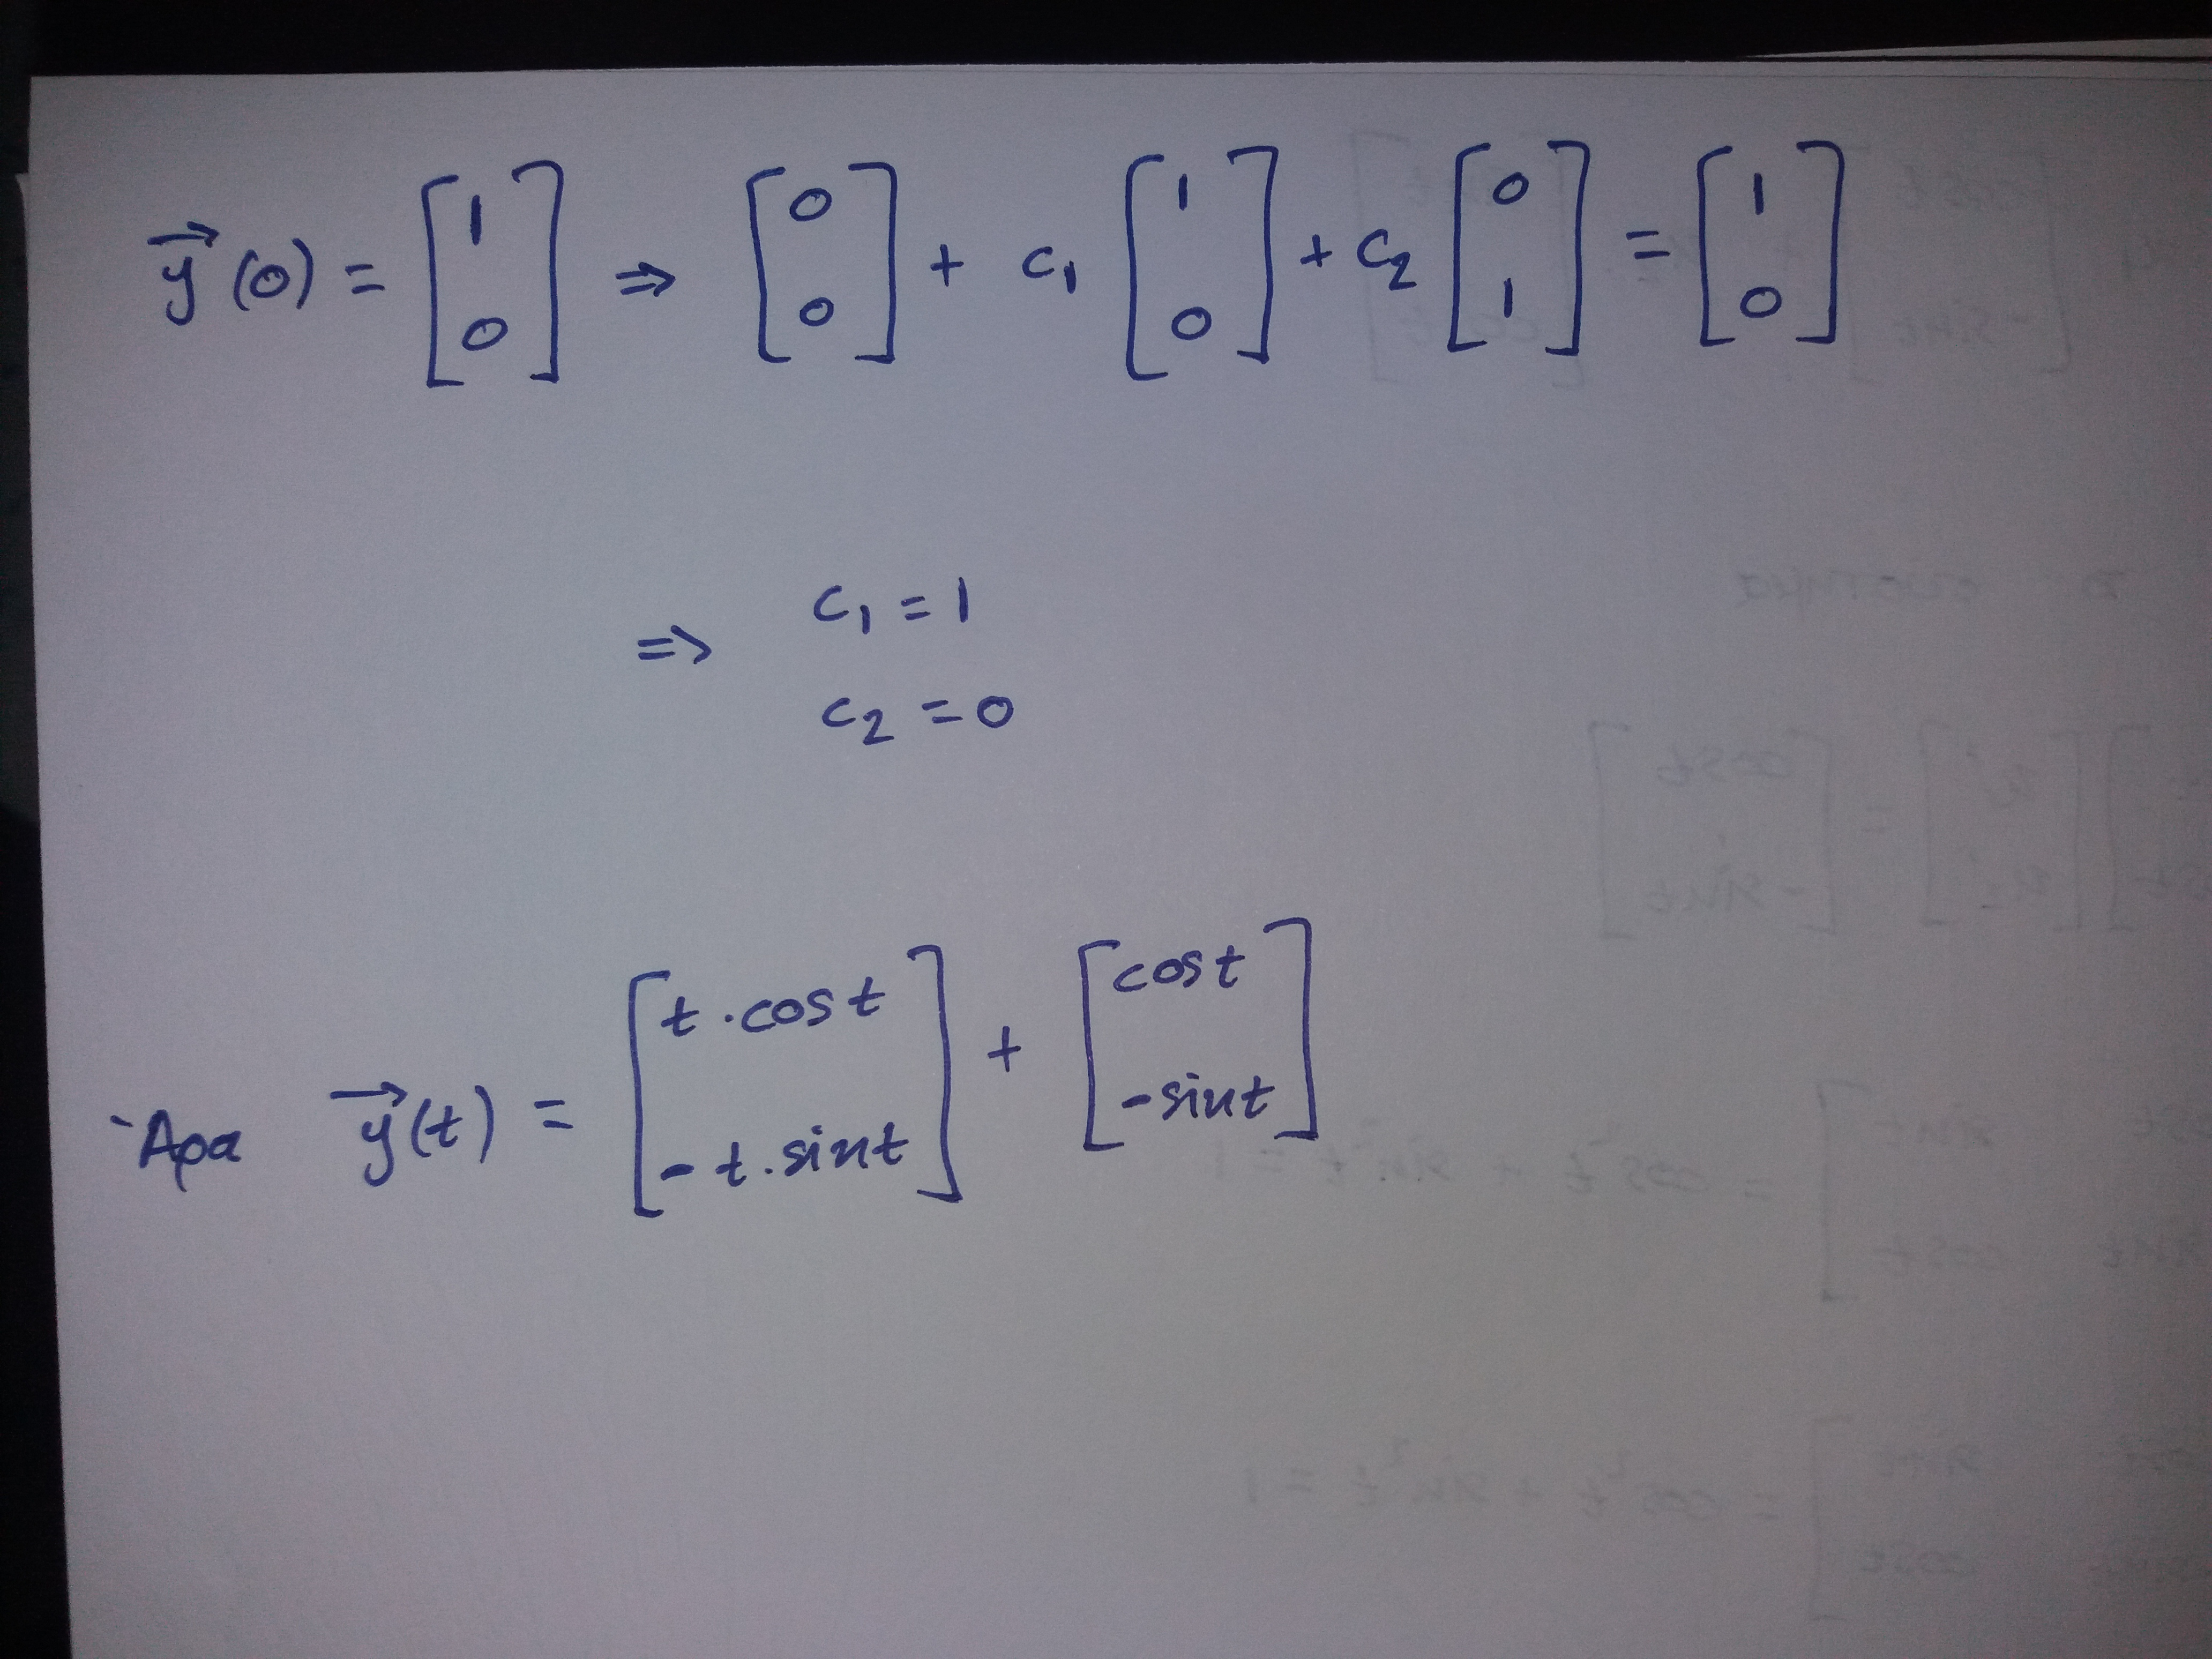 y⃗(0) = [1 0] ⇒ [0 0] + c₁ [1 0] + c₂ [0 1] = [1 0]
⇒ c₁ = 1
c₂ = 0
Άρα y⃗(t) = [t·cost -t·sint] + [cost -sint]